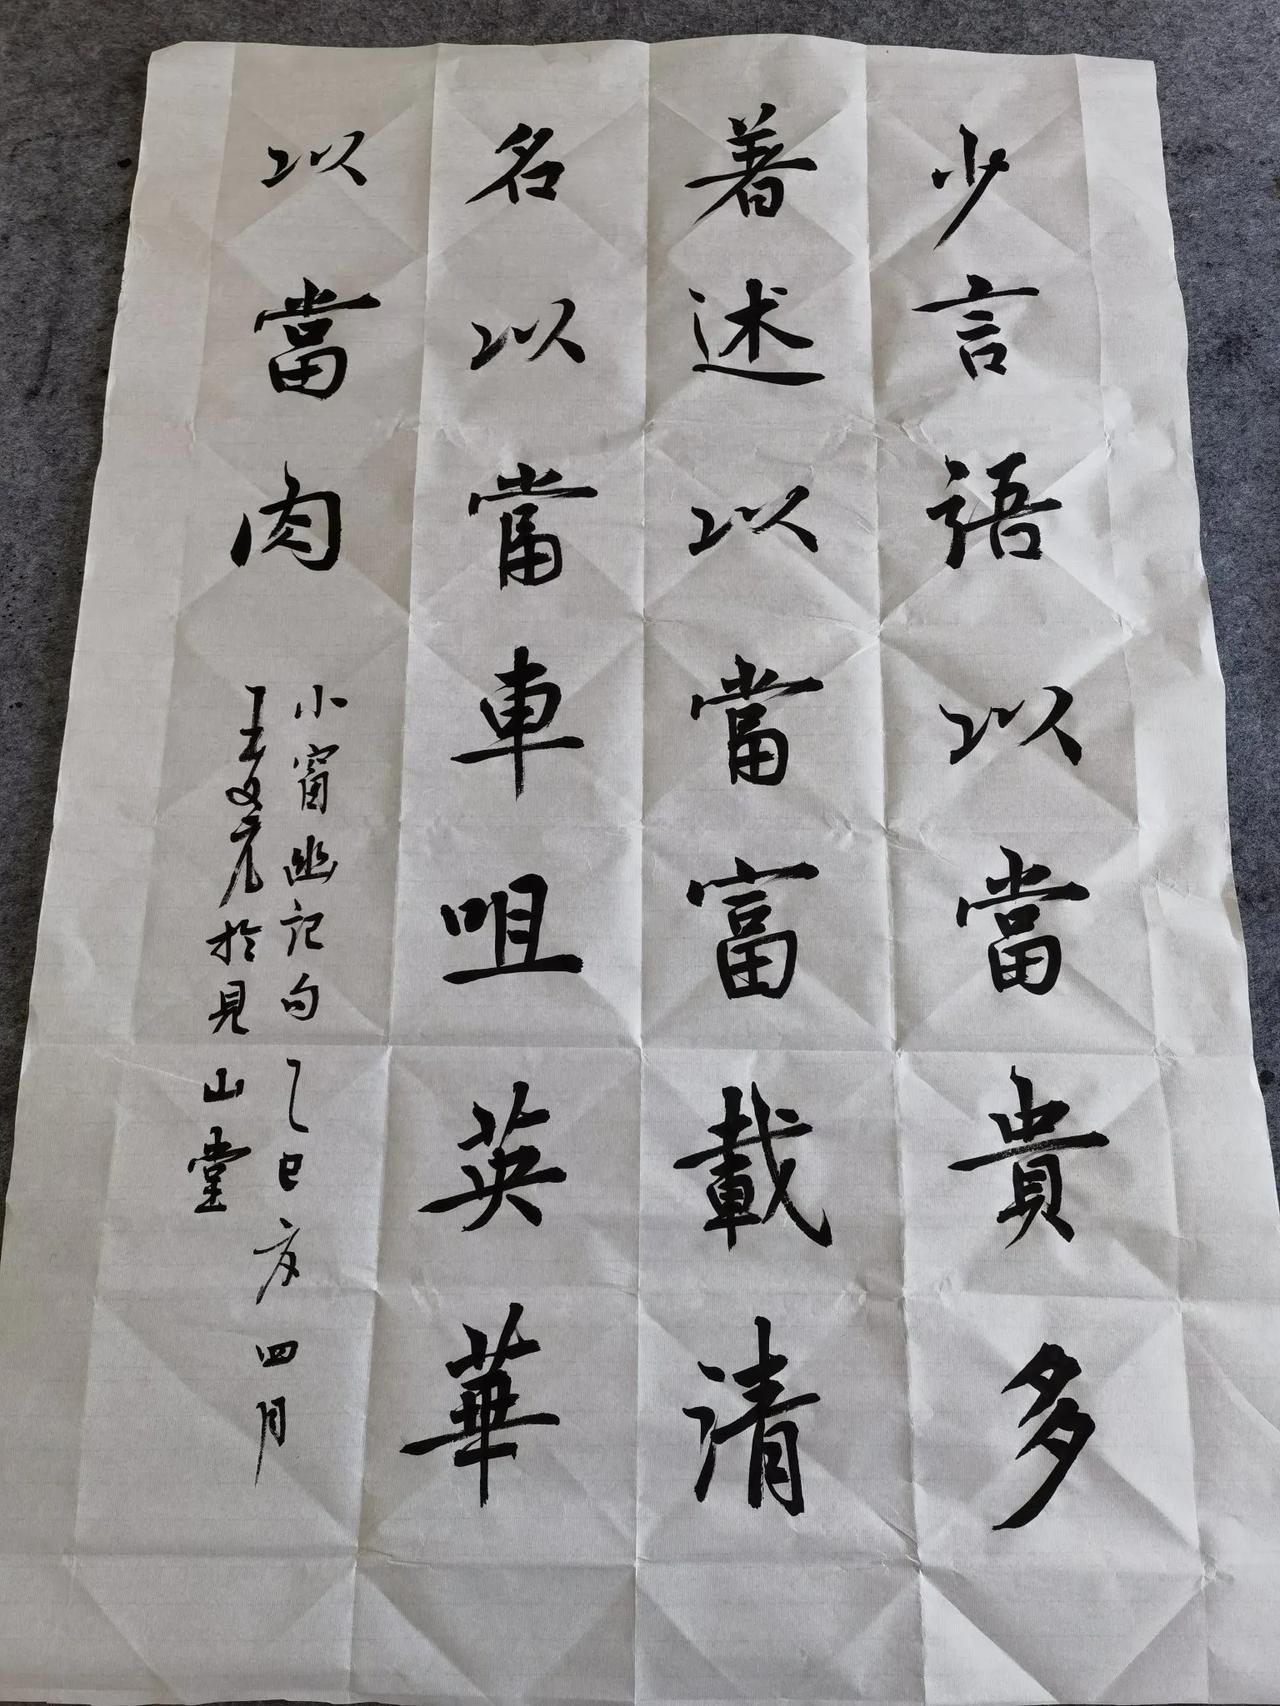 少言語以當貴多
著述以當富載清
名以當車咀英華
以當肉
小窗幽記句乙巳友四月
王文彦於見山堂